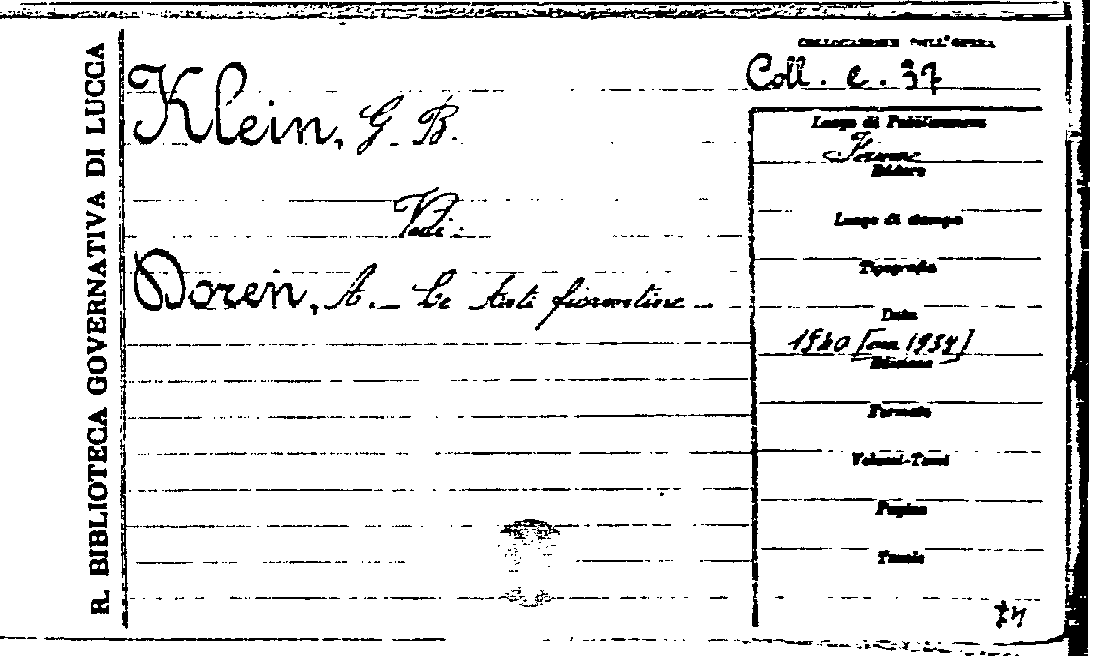 R. BIBLIOTECA GOVERNATIVA DI LUCCA
COLLOCAZIONE DELL'OPERA
Coll. e. 37
Klein, G. B.
Vedi:
Doren, A. - Le Arti fiorentine -
Luogo di Pubblicazione
Firenze
Editore
Luogo di stampa
Tipografia
Data
1940 [ma 1937]
Edizione
Formato
Volumi-Tomi
Pagine
Tavole